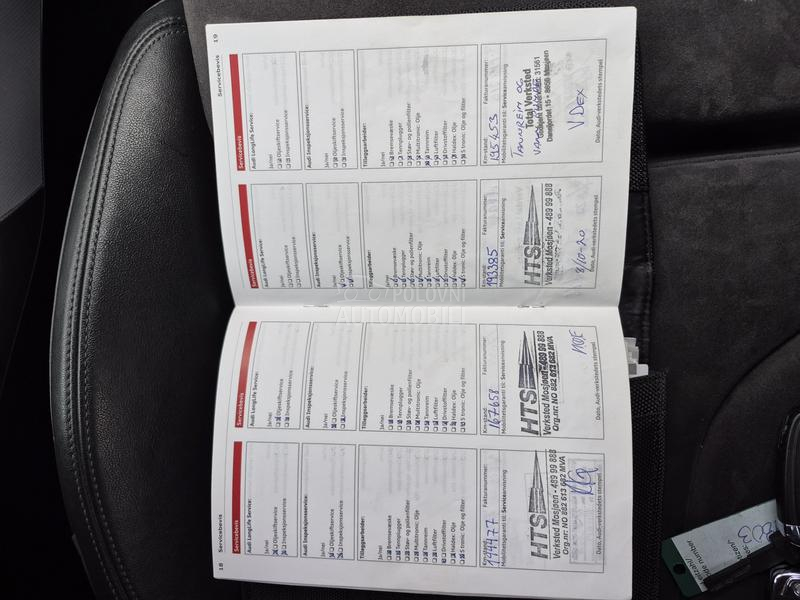 18 Servicebevis
Servicebevis
Audi LongLife Service:
Ja/nei
Oljeskiftservice
Inspeksjonsservice
Audi Inspeksjonsservice:
Ja/nei
Oljeskiftservice
Inspeksjonsservice
Tilleggsarbeider:
Ja/nei
Bremsevæske
Tennplugger
Støv- og pollenfilter
Multitronic: Olje
Tannreim
Luftfilter
Drivstoffilter
Haldex: Olje
S tronic: Olje og filter
Km-stand: Fakturanummer:
144477
Mobilitetsgaranti til: Serviceanvisning
HTS
Verksted Mosjøen - 489 99 888
Org.nr: NO 882 613 682 MVA
Dato, Audi-verkstedets stempel
Servicebevis
Audi LongLife Service:
Ja/nei
Oljeskiftservice
Inspeksjonsservice
Audi Inspeksjonsservice:
Ja/nei
Oljeskiftservice
Inspeksjonsservice
Tilleggsarbeider:
Ja/nei
Bremsevæske
Tennplugger
Støv- og pollenfilter
Multitronic: Olje
Tannreim
Luftfilter
Drivstoffilter
Haldex: Olje
S tronic: Olje og filter
Km-stand: Fakturanummer:
167658
Mobilitetsgaranti til: Serviceanvisning
HTS
Verksted Mosjøen - 489 99 888
Org.nr: NO 882 613 682 MVA
Dato, Audi-verkstedets stempel
Servicebevis
Audi LongLife Service:
Ja/nei
Oljeskiftservice
Inspeksjonsservice
Audi Inspeksjonsservice:
Ja/nei
Oljeskiftservice
Inspeksjonsservice
Tilleggsarbeider:
Ja/nei
Bremsevæske
Tennplugger
Støv- og pollenfilter
Multitronic: Olje
Tannreim
Luftfilter
Drivstoffilter
Haldex: Olje
S tronic: Olje og filter
Km-stand: Fakturanummer:
193385
Mobilitetsgaranti til: Serviceanvisning
HTS
Verksted Mosjøen - 489 99 888
8/10-20
Dato, Audi-verkstedets stempel
Servicebevis 19
Servicebevis
Audi LongLife Service:
Ja/nei
Oljeskiftservice
Inspeksjonsservice
Audi Inspeksjonsservice:
Ja/nei
Oljeskiftservice
Inspeksjonsservice
Tilleggsarbeider:
Ja/nei
Bremsevæske
Tennplugger
Støv- og pollenfilter
Multitronic: Olje
Tannreim
Luftfilter
Drivstoffilter
Haldex: Olje
S tronic: Olje og filter
Km-stand: Fakturanummer:
195653
Mobilitetsgaranti til: Serviceanvisning
TANNREIM OG
Total Verksted
Dato, Audi-verkstedets stempel
POLOVNI
AUTOMOBILI